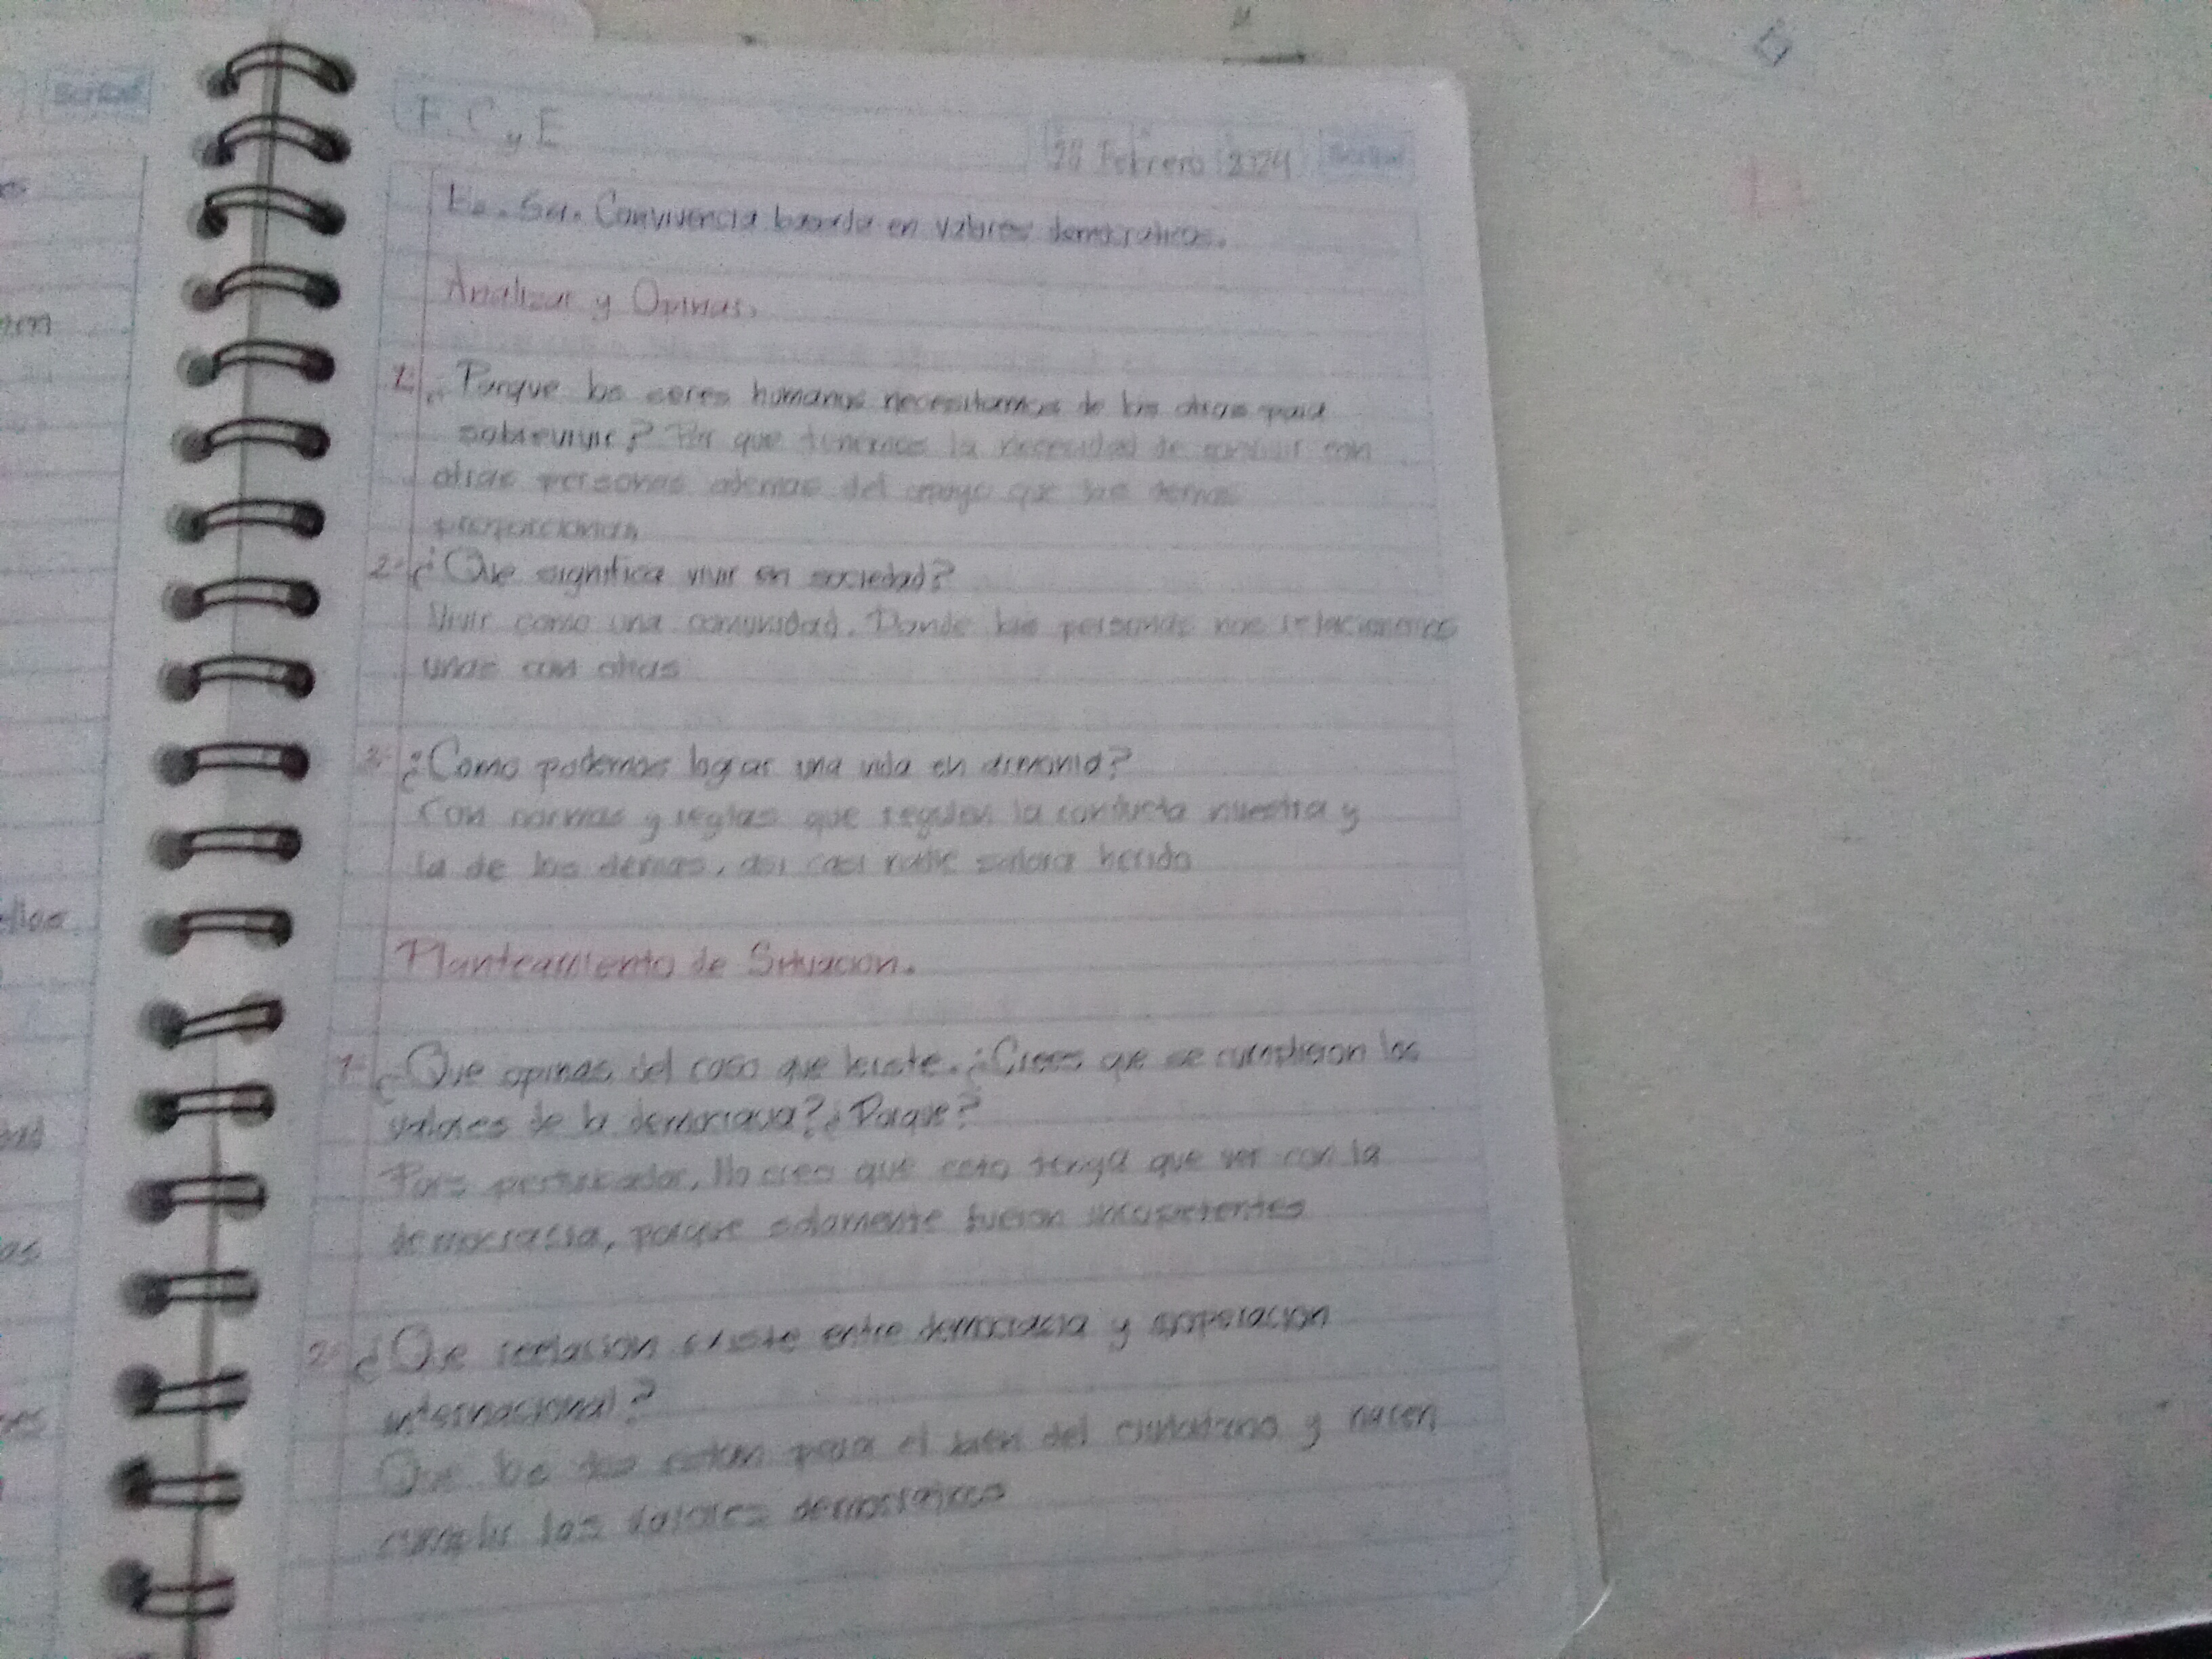 F. C y E
28 Febrero 2024
Convivencia basada en valores democraticos.
Analizar y Opinas.
1- ¿Porque los seres humanos necesitamos de los otros para
sobrevivir? Por que tenemos la necesidad de convivir con
otras personas ademas del apoyo que las demas
proporcionan
2- ¿Que significa vivir en sociedad?
Vivir como una comunidad. Donde las personas nos relacionemos
unas con otras
3- ¿Como podemos lograr una vida en armonia?
Con normas y reglas que regulen la conducta nuestra y
la de los demas, asi casi nadie saldra herido
Planteamiento de Situacion.
1- ¿Que opinas del caso que leiste. ¿Crees que se cumplieron los
valores de la democracia? ¿Porque?
perturbador, No creo que esto tenga que ver con la
democracia, porque solamente fueron incopetentes
2- ¿Que reelacion existe entre democracia y cooperacion
internacional?
Que los dos estan para el bien del ciudadano y hacen
cumplir los valores democraticos
Scribe